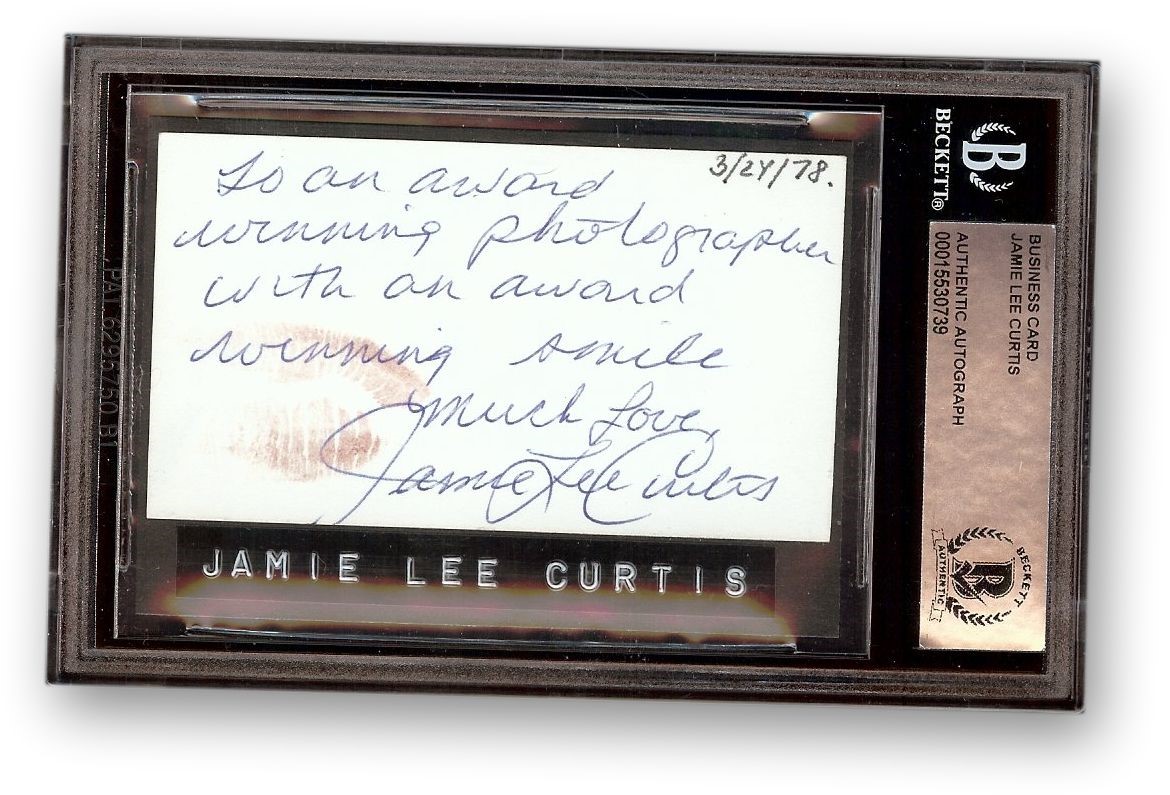 3/24/78.
To an award
winning photographer
with an award
winning smile
Much Love,
Jamie Lee Curtis
JAMIE LEE CURTIS
B
BECKETT®
BUSINESS CARD
JAMIE LEE CURTIS
AUTHENTIC AUTOGRAPH
00015530739
BECKETT
B
AUTHENTIC